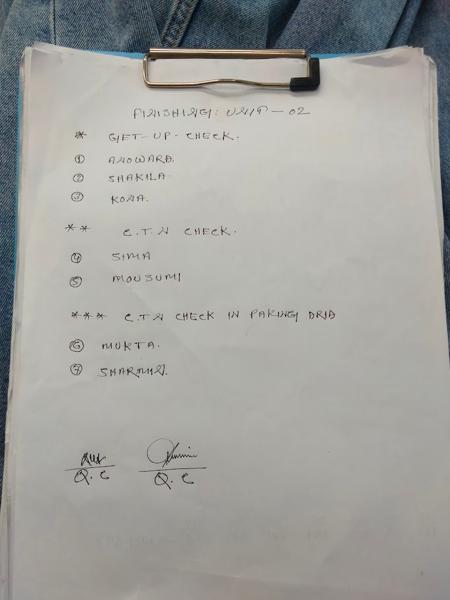 FINISHING: UNIT - 02
* GET-UP-CHECK.
① ANOWARA.
② SHAKILA
③ KONA.
** C.T.N CHECK.
④ SIMA
⑤ MOUSUMI
*** C.T.N CHECK IN PAKING ARIA
⑥ MUKTA.
⑦ SHARMIN.
Q.C Q.C